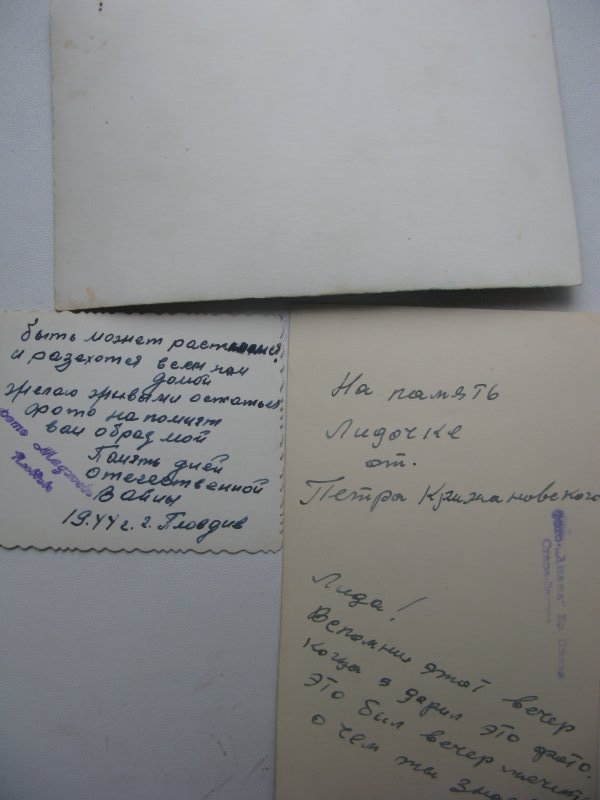 быть может
и разехотся всем нам
домой
желаю живыми остаться
фото напомнит
вам образ мой
Память дней
отечественной
Войны
1944 г. г. Пловдив
фото
Пловдив
На память
Лидочке
от.
Петра Крижановского
Фото „Анапа" Бр.
Стара-Загора
Лида!
Вспомни этот вечер
Когда я дарил это фото.
Это был вечер
о чем ты